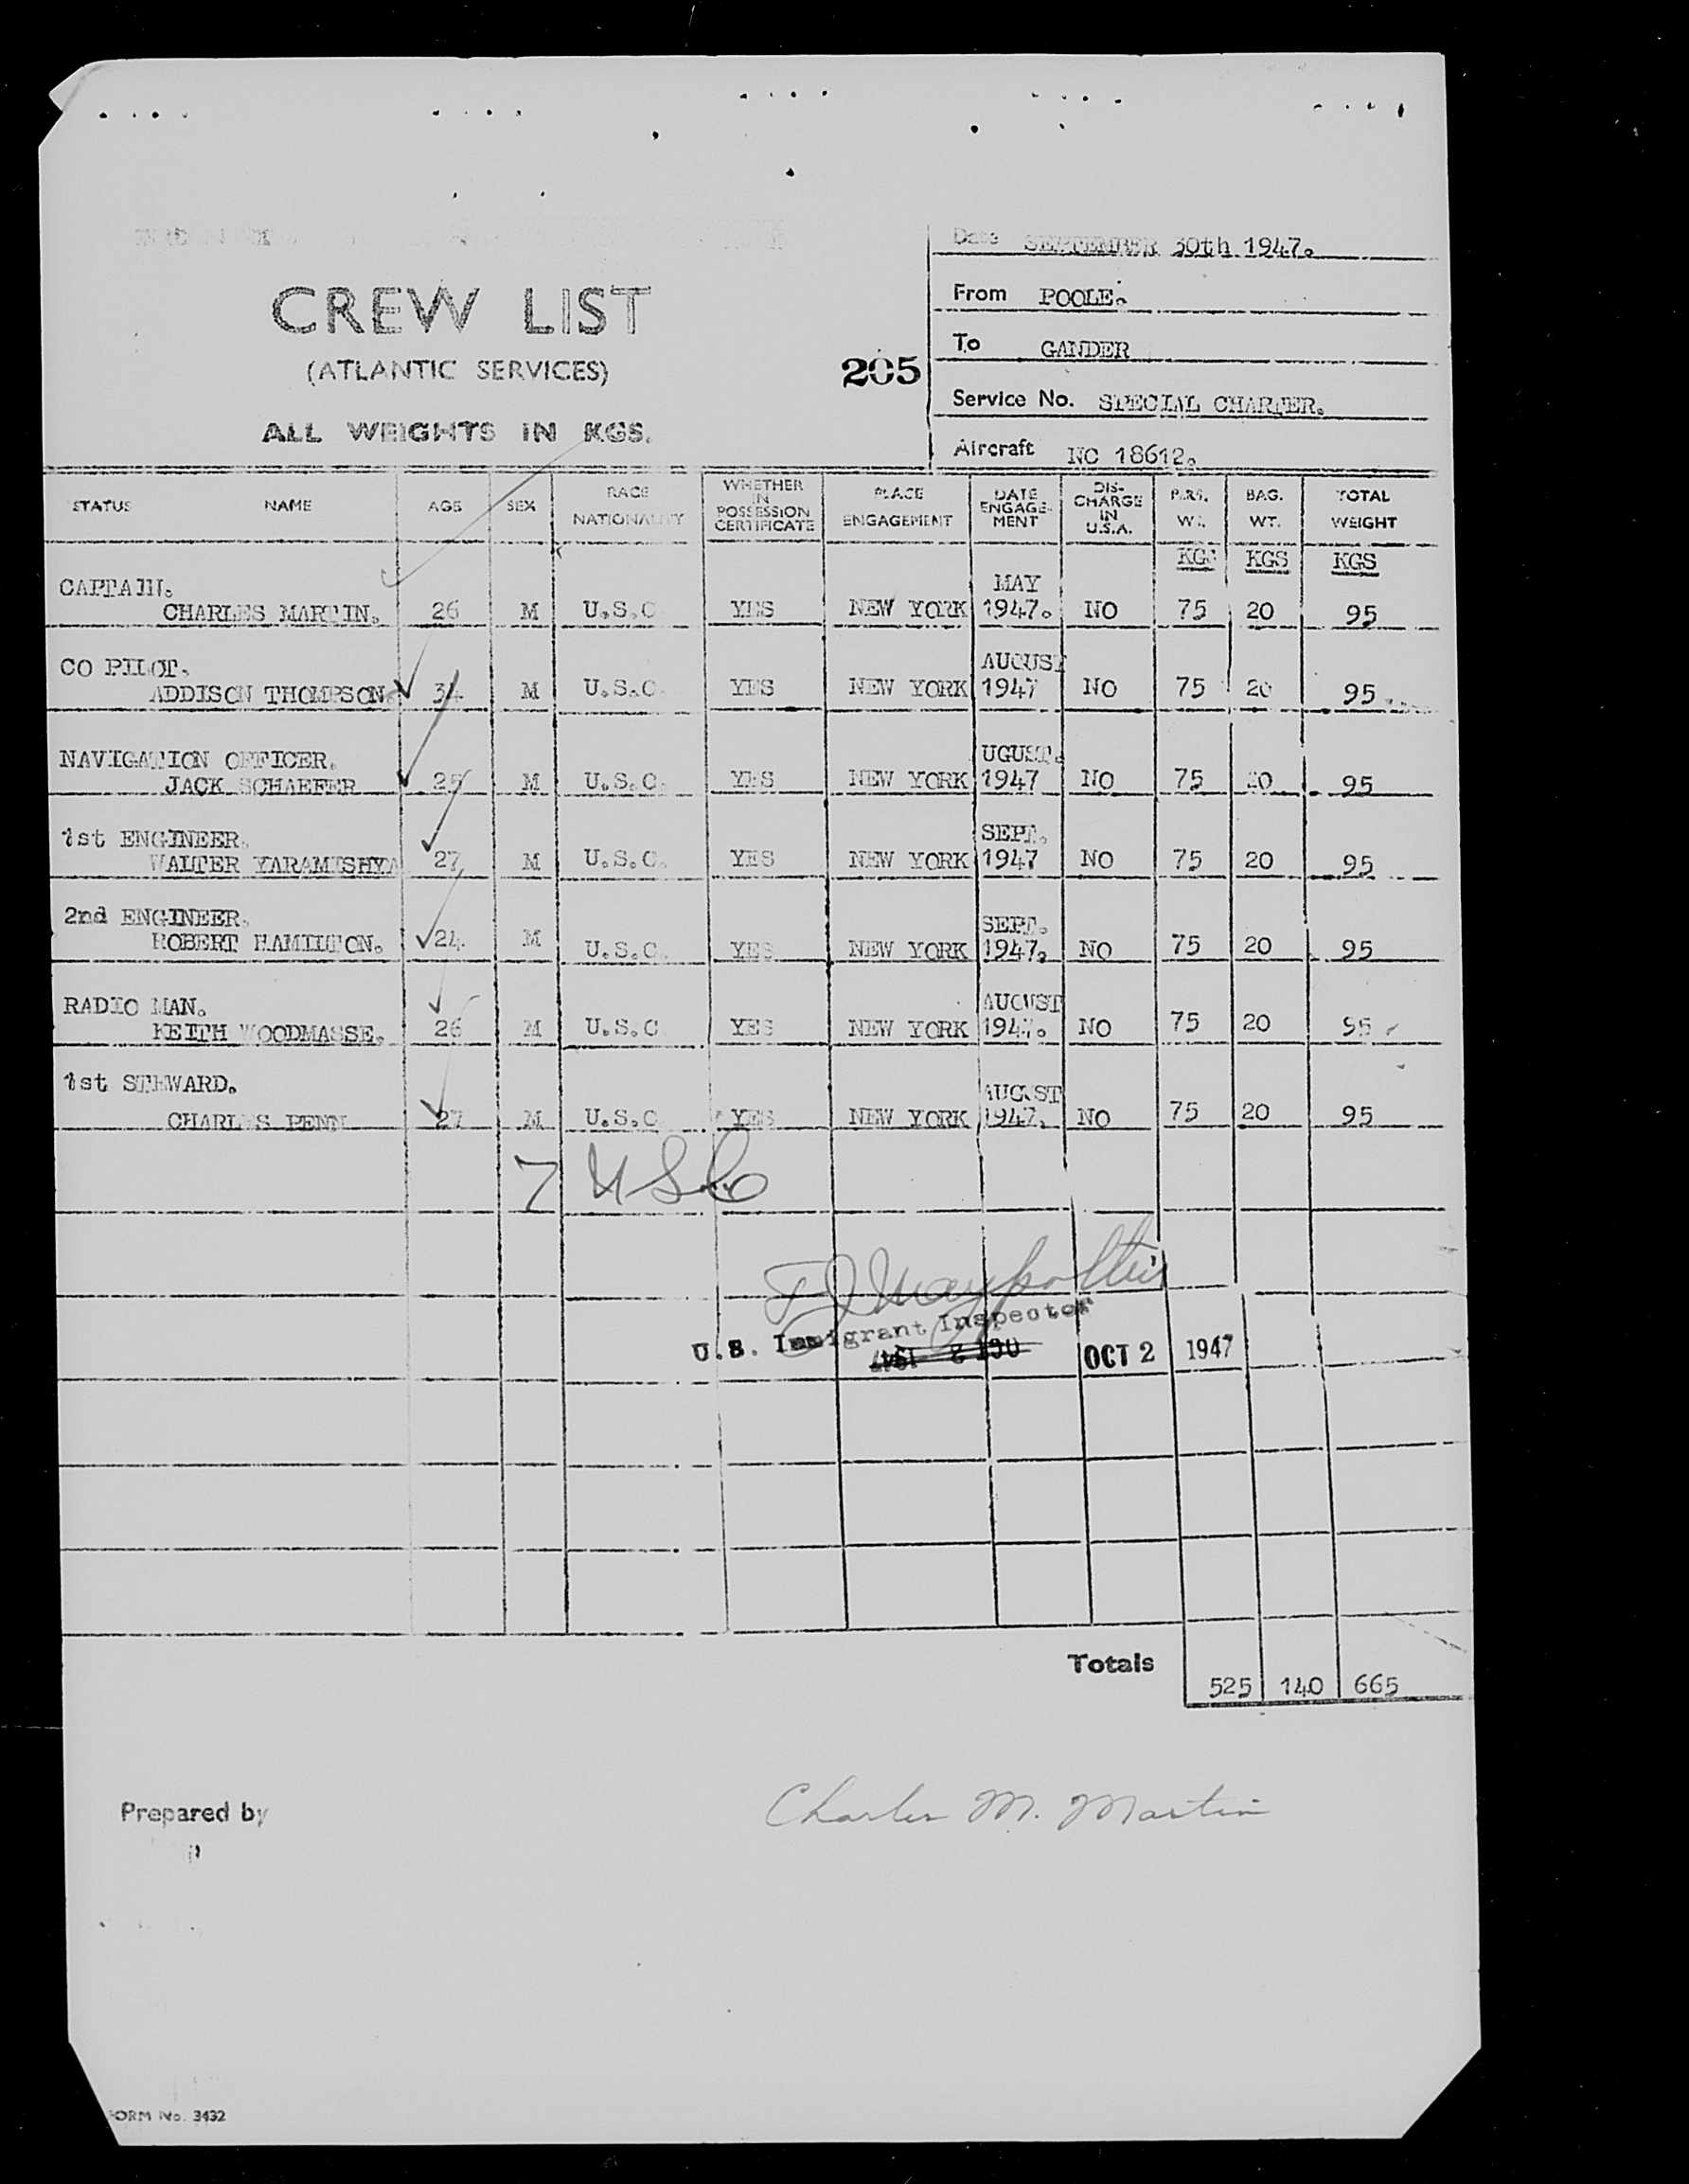 Date SEPTEMBER 30th 1947.
From POOLE.
To GANDER
Service No. SPECIAL CHARTER.
Aircraft NC 18612.
CREW LIST
(ATLANTIC SERVICES)
205
ALL WEIGHTS IN KGS.
STATUS NAME AGE SEX RACE NATIONALITY WHETHER IN POSSESSION CERTIFICATE PLACE ENGAGEMENT DATE ENGAGE- MENT DIS- CHARGE IN U.S.A. PERS. WT. BAG. WT. TOTAL WEIGHT
KGS KGS KGS
CAPTAIN. MAY
CHARLES MARTIN. 26 M U.S.C YES NEW YORK 1947. NO 75 20 95
CO PILOT. AUGUST
ADDISON THOMPSON 34 M U.S.C. YES NEW YORK 1947 NO 75 20 95
NAVIGATION OFFICER. UGUST.
JACK SCHAEFER 25 M U.S.C. YES NEW YORK 1947 NO 75 20 95
1st ENGINEER. SEPT.
WALTER YARAMISHYN 27 M U.S.C. YES NEW YORK 1947 NO 75 20 95
2nd ENGINEER. SEPT.
ROBERT HAMILTON. 24 M U.S.C. YES NEW YORK 1947. NO 75 20 95
RADIO MAN. AUGUST
KEITH WOODMASSE. 26 M U.S.C YES NEW YORK 1947. NO 75 20 95
1st STEWARD. AUGUST
CHARLES PENN 27 M U.S.C YES NEW YORK 1947. NO 75 20 95
7 USC
U.S. Immigrant Inspector
OCT 2 1947
OCT 2 1947
Totals 525 140 665
Prepared by
Charles M. Martin
FORM No. 3432